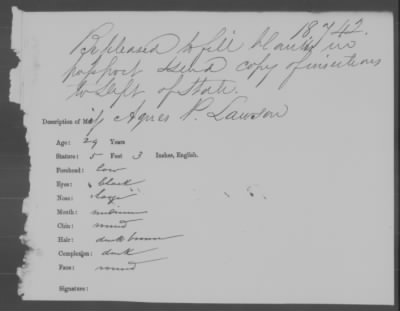 18742.
Be pleased to fill blanks in
passport & send copy of insertions
to Dept of State.
Description of Mrs Agnes P. Lawson
Age: 29 Years
Stature: 5 Feet 3 Inches, English.
Forehead: low
Eyes: black
Nose: large
Mouth: medium
Chin: round
Hair: dark brown
Complexion: dark
Face: round
Signature: